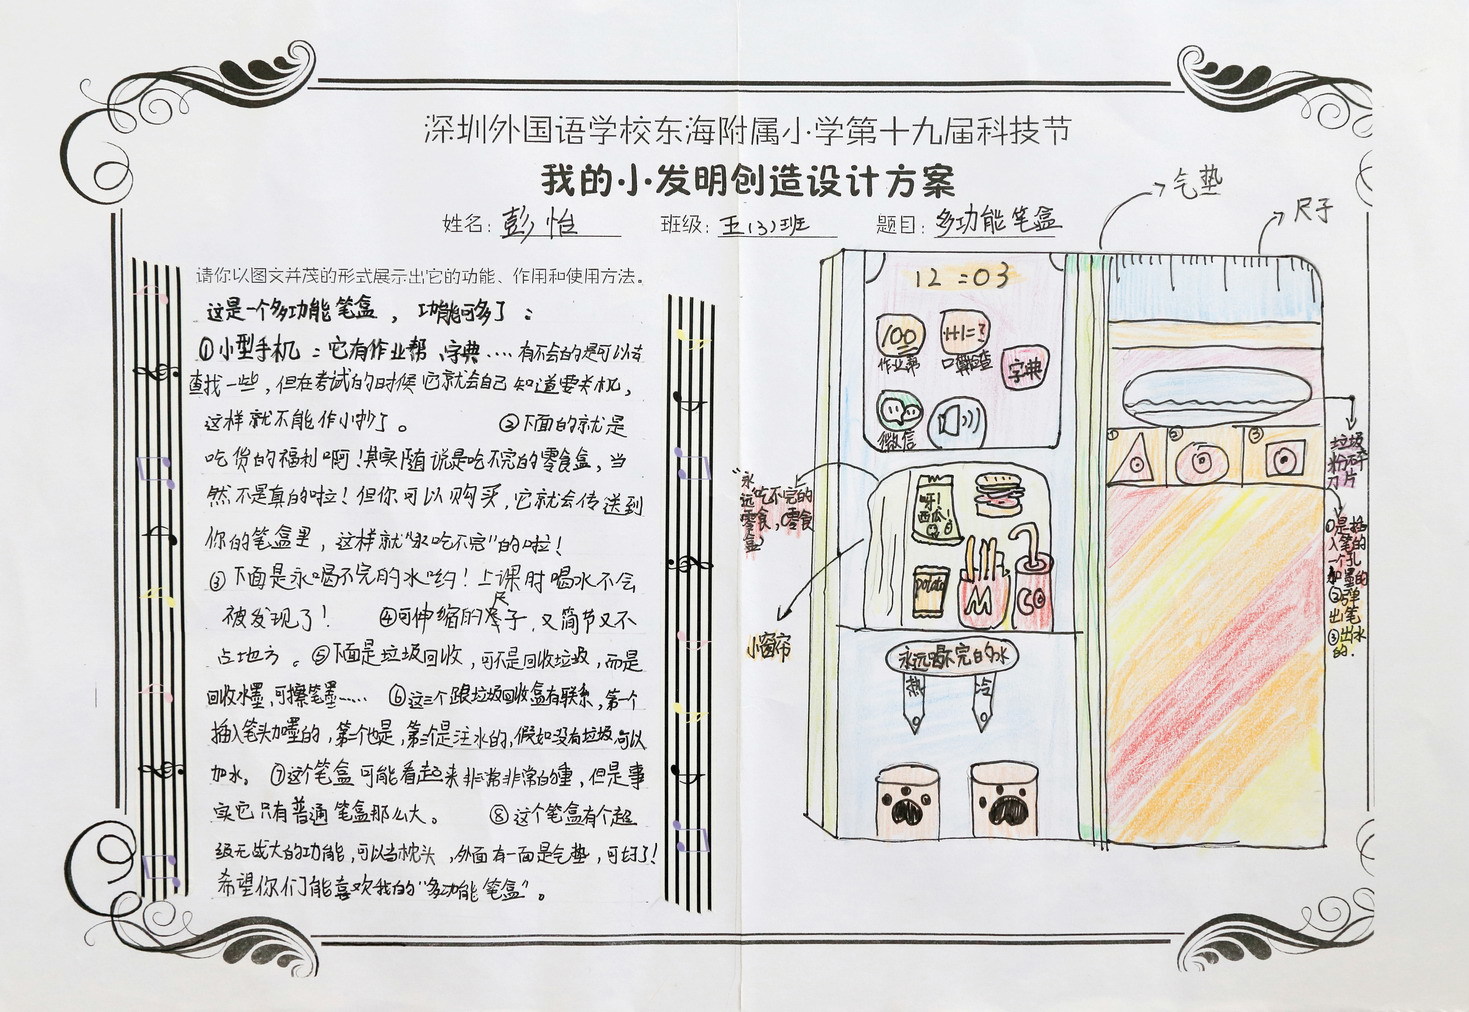 深圳外国语学校东海附属小学第十九届科技节
我的小发明创造设计方案
姓名：彭怡 班级：五(3)班 题目：多功能笔盒
请你以图文并茂的形式展示出它的功能、作用和使用方法。
这是一个多功能笔盒，功能可多了：
①小型手机：它有作业帮、字典····有不会的是可以去
查找一些，但在考试的时候它就会自己知道要关机，
这样就不能作小抄了。 ②下面的就是
吃货的福利啊！其实随说是吃不完的零食盒，当
然不是真的啦！但你可以购买，它就会传送到
你的笔盒里，这样就“永吃不完”的啦！
③下面是永喝不完的水哟！上课时喝水不会
被发现了！ ④可伸缩的尺子，又简节又不
占地方。⑤下面是垃圾回收，可不是回收垃圾，而是
回收水墨，可擦笔墨······ ⑥这三个跟垃圾回收盒有联系，第一个
插入笔头加墨的，第二个也是，第三个是注水的，假如没有垃圾，可以
加水。⑦这个笔盒可能看起来非常非常的重，但是事
实它只有普通笔盒那么大。 ⑧这个笔盒有个超
级无敌大的功能，可以当枕头，外面有一面是气垫，可好了！
希望你们能喜欢我的“多功能笔盒”。
气垫
尺子
12:03
100
作业帮
1+1=?
口算检查
字典
微信
“永远吃不完的零食，零食盒”
呀！
西瓜！
potato
M
小窗帘
永远喝不完白的水
热 冷
① ② ③
垃圾粉碎刀片
①是插入笔的一个孔加墨的
②弹出笔
③出水的.